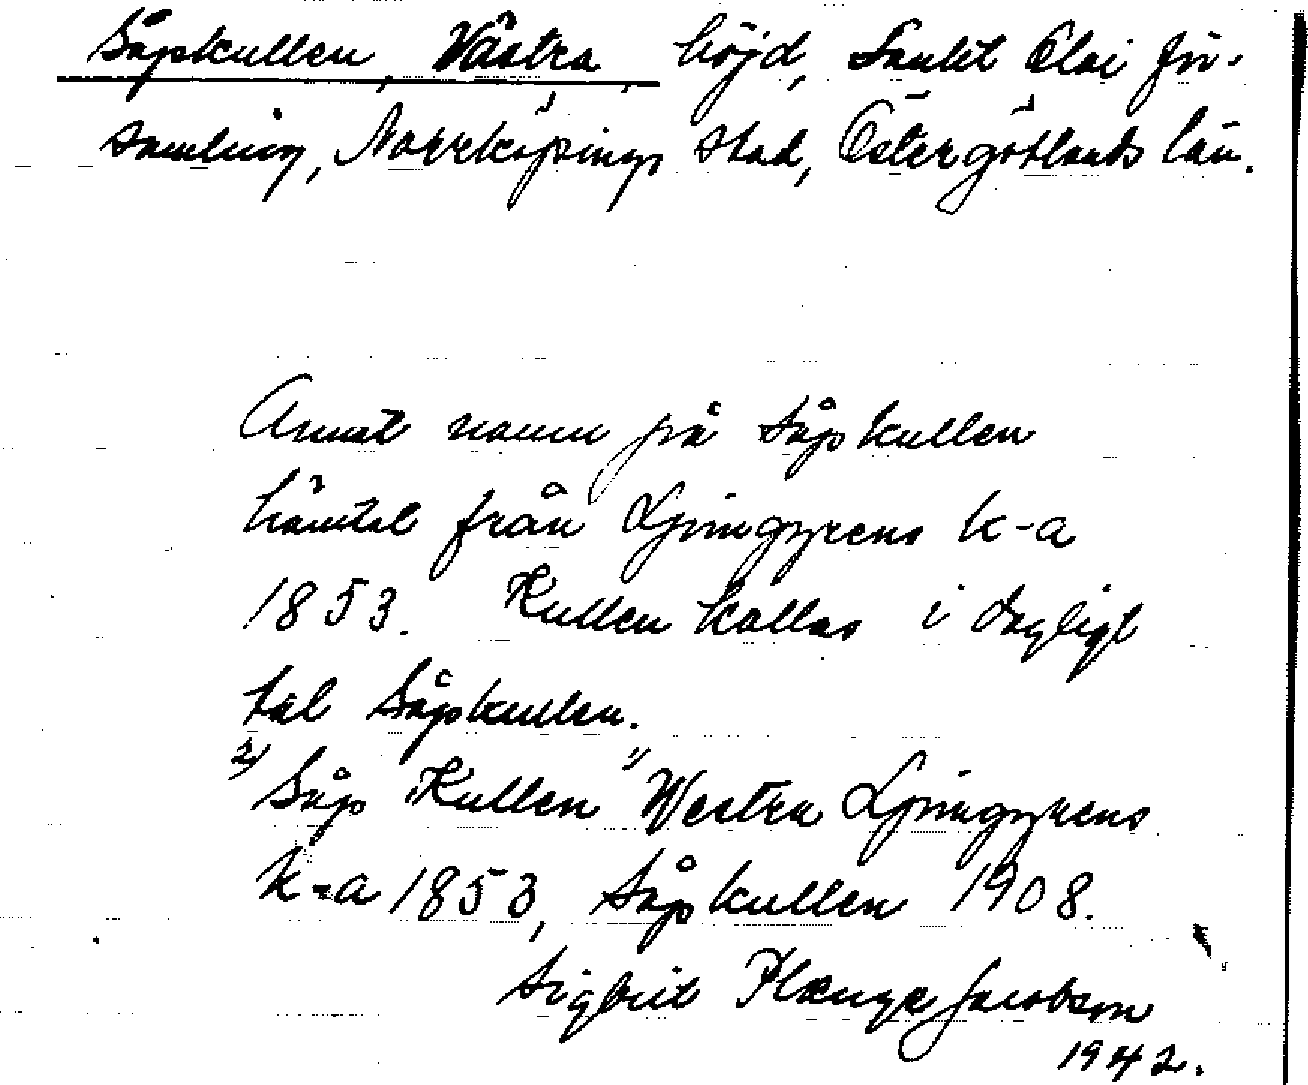 Såpskullen, Västra, höjd, Sankt Olai för-
samling, Norrköpings stad, Östergötlands län.
Annat namn på Såpkullen
hämtat från Ljunggrens k-a
1853. Kullen kallas i dagligt
tal Såpkullen.
2) Såp Kullen" Westra Ljunggrens
k-a 1853, Såpkullen 1908.
Sigfrid Plænge Jacobson
1942.